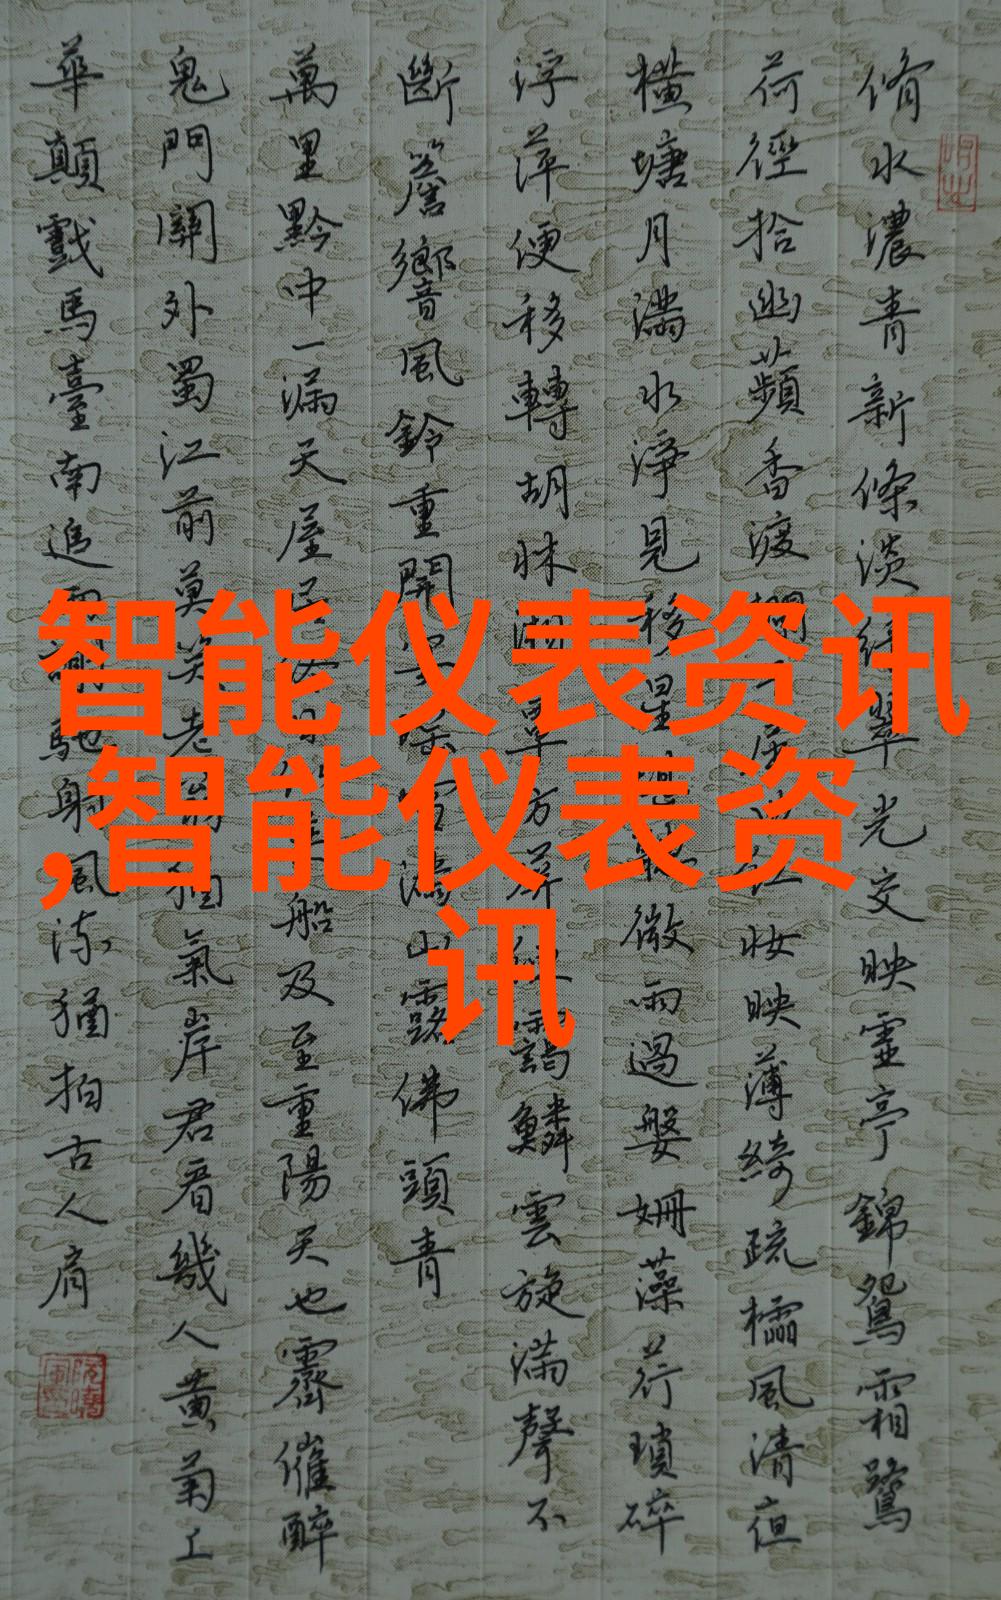 水濃青新條淡綠翠光交映亭錦鴛霜鷺
荷徑拾幽蘋香渡紅妝映薄綺疏櫺風清
橫塘月滿水淨見移星微雨過媻姍藻荇瑣碎
浮萍便移轉胡牀湘簟方屏靄鱗雲旋滿聲不
斷簷響風鈴重開雪山露佛頭青
萬里黔中一漏天屋居船及至重陽天也霽催醉
鬼門關外蜀江前莫笑老翁猶氣岸君看幾人黃菊上
華顛戲馬臺南追兩謝馳射風流猶拍古人肩
智能仪表资讯
,智能仪表资
讯